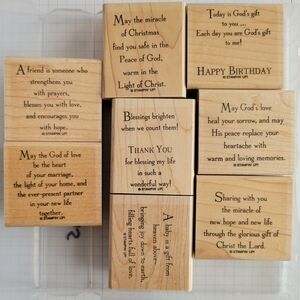 May the miracle
of Christmas
find you safe in the
Peace of God,
warm in the
Light of Christ.
© STAMPIN' UP!
Today is God's gift
to you ...
Each day you are God's gift
to me!
HAPPY BIRTHDAY
© STAMPIN' UP!
A friend is someone who
strengthens you
with prayers,
blesses you with love,
and encourages you
with hope.
© STAMPIN' UP!
Blessings brighten
when we count them!
THANK YOU
for blessing my life
in such a
wonderful way!
© STAMPIN' UP!
May God's love
heal your sorrow, and may
His peace replace your
heartache with
warm and loving memories.
© STAMPIN' UP!
May the God of love
be the heart
of your marriage,
the light of your home, and
the ever-present partner
in your new life
together.
© STAMPIN' UP!
A baby is a gift from
heaven above—
bringing joy down to earth,
filling hearts full of love.
© STAMPIN' UP!
Sharing with you
the miracle of
new hope and new life
through the glorious gift of
Christ the Lord.
© STAMPIN' UP!